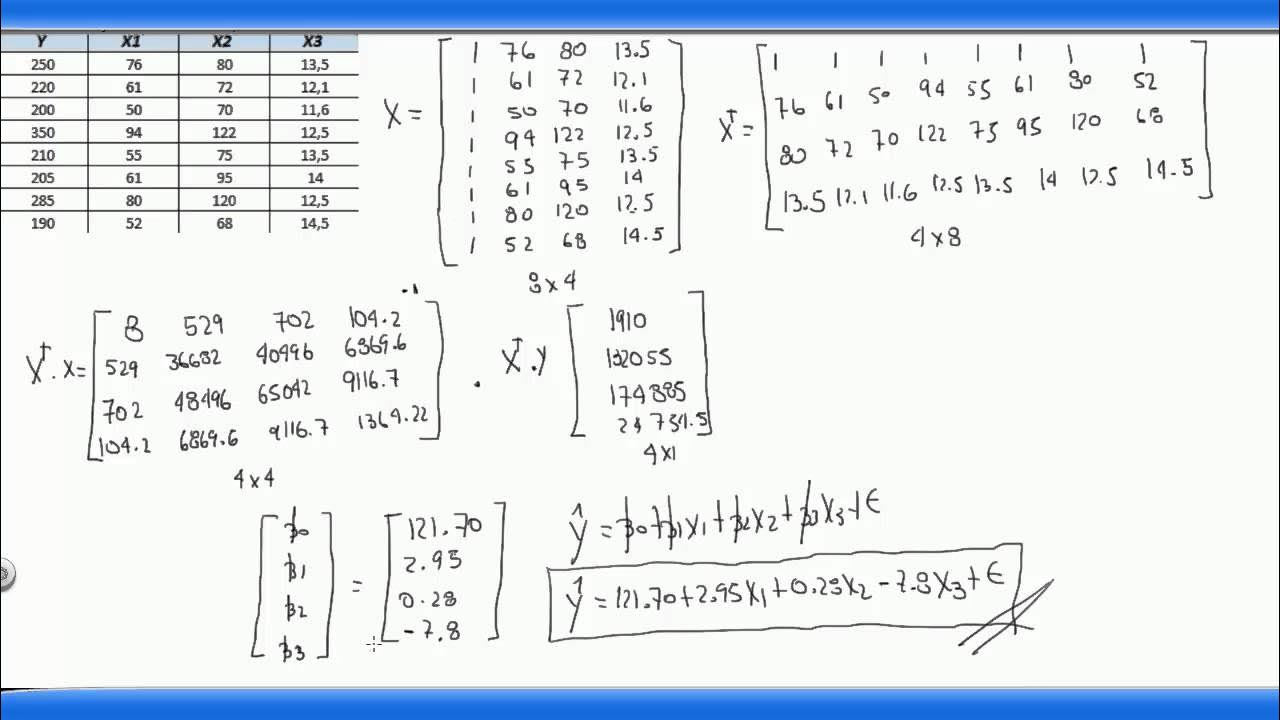 Y X1 X2 X3
250 76 80 13,5
220 61 72 12,1
200 50 70 11,6
350 94 122 12,5
210 55 75 13,5
205 61 95 14
285 80 120 12,5
190 52 68 14,5
X =
1 76 80 13.5
1 61 72 12.1
1 50 70 11.6
1 94 122 12.5
1 55 75 13.5
1 61 95 14
1 80 120 12.5
1 52 68 14.5
8x4
X^T =
1 1 1 1 1 1 1 1
76 61 50 94 55 61 80 52
80 72 70 122 75 95 120 68
13.5 12.1 11.6 12.5 13.5 14 12.5 14.5
4x8
-1
X^T . X =
8 529 702 104.2
529 36632 40496 6869.6
702 48496 65042 9116.7
104.2 6869.6 9116.7 1364.22
4x4
. X^T . Y
1910
132055
174885
24734.5
4x1
β0
β1
β2
β3
=
121.70
2.95
0.28
-7.8
Ŷ = β0+β1X1+β2X2+β3X3+ε
Ŷ = 121.70+2.95X1+0.28X2-7.8X3+ε